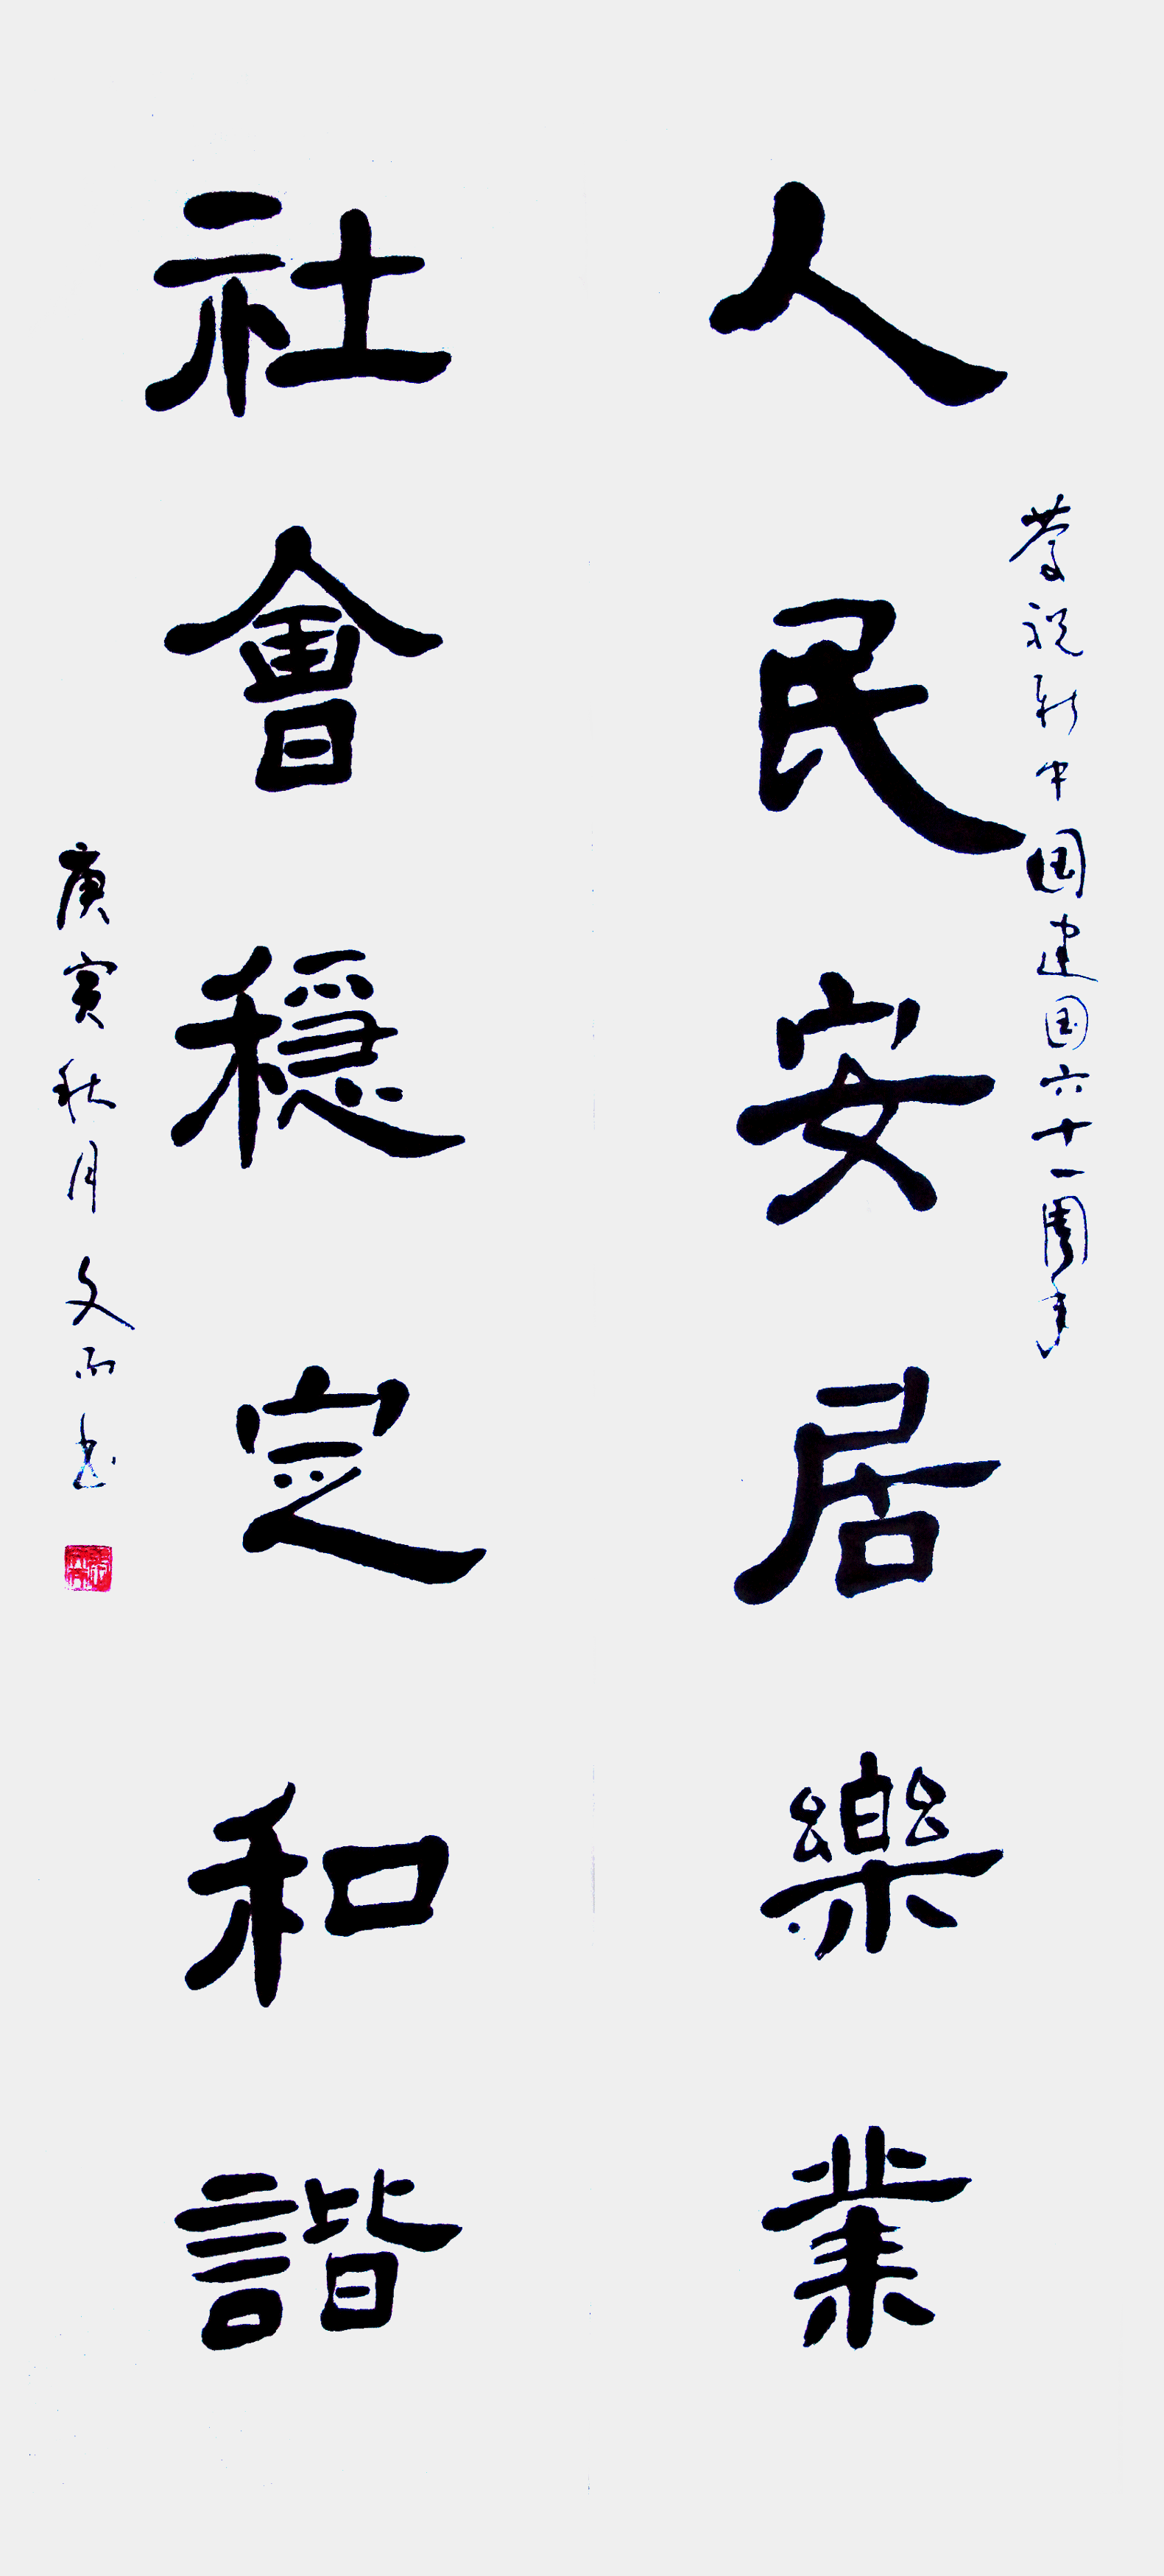 慶祝新中国建国六十一周年
人民安居樂業
社會穩定和諧
庚寅秋月文　书